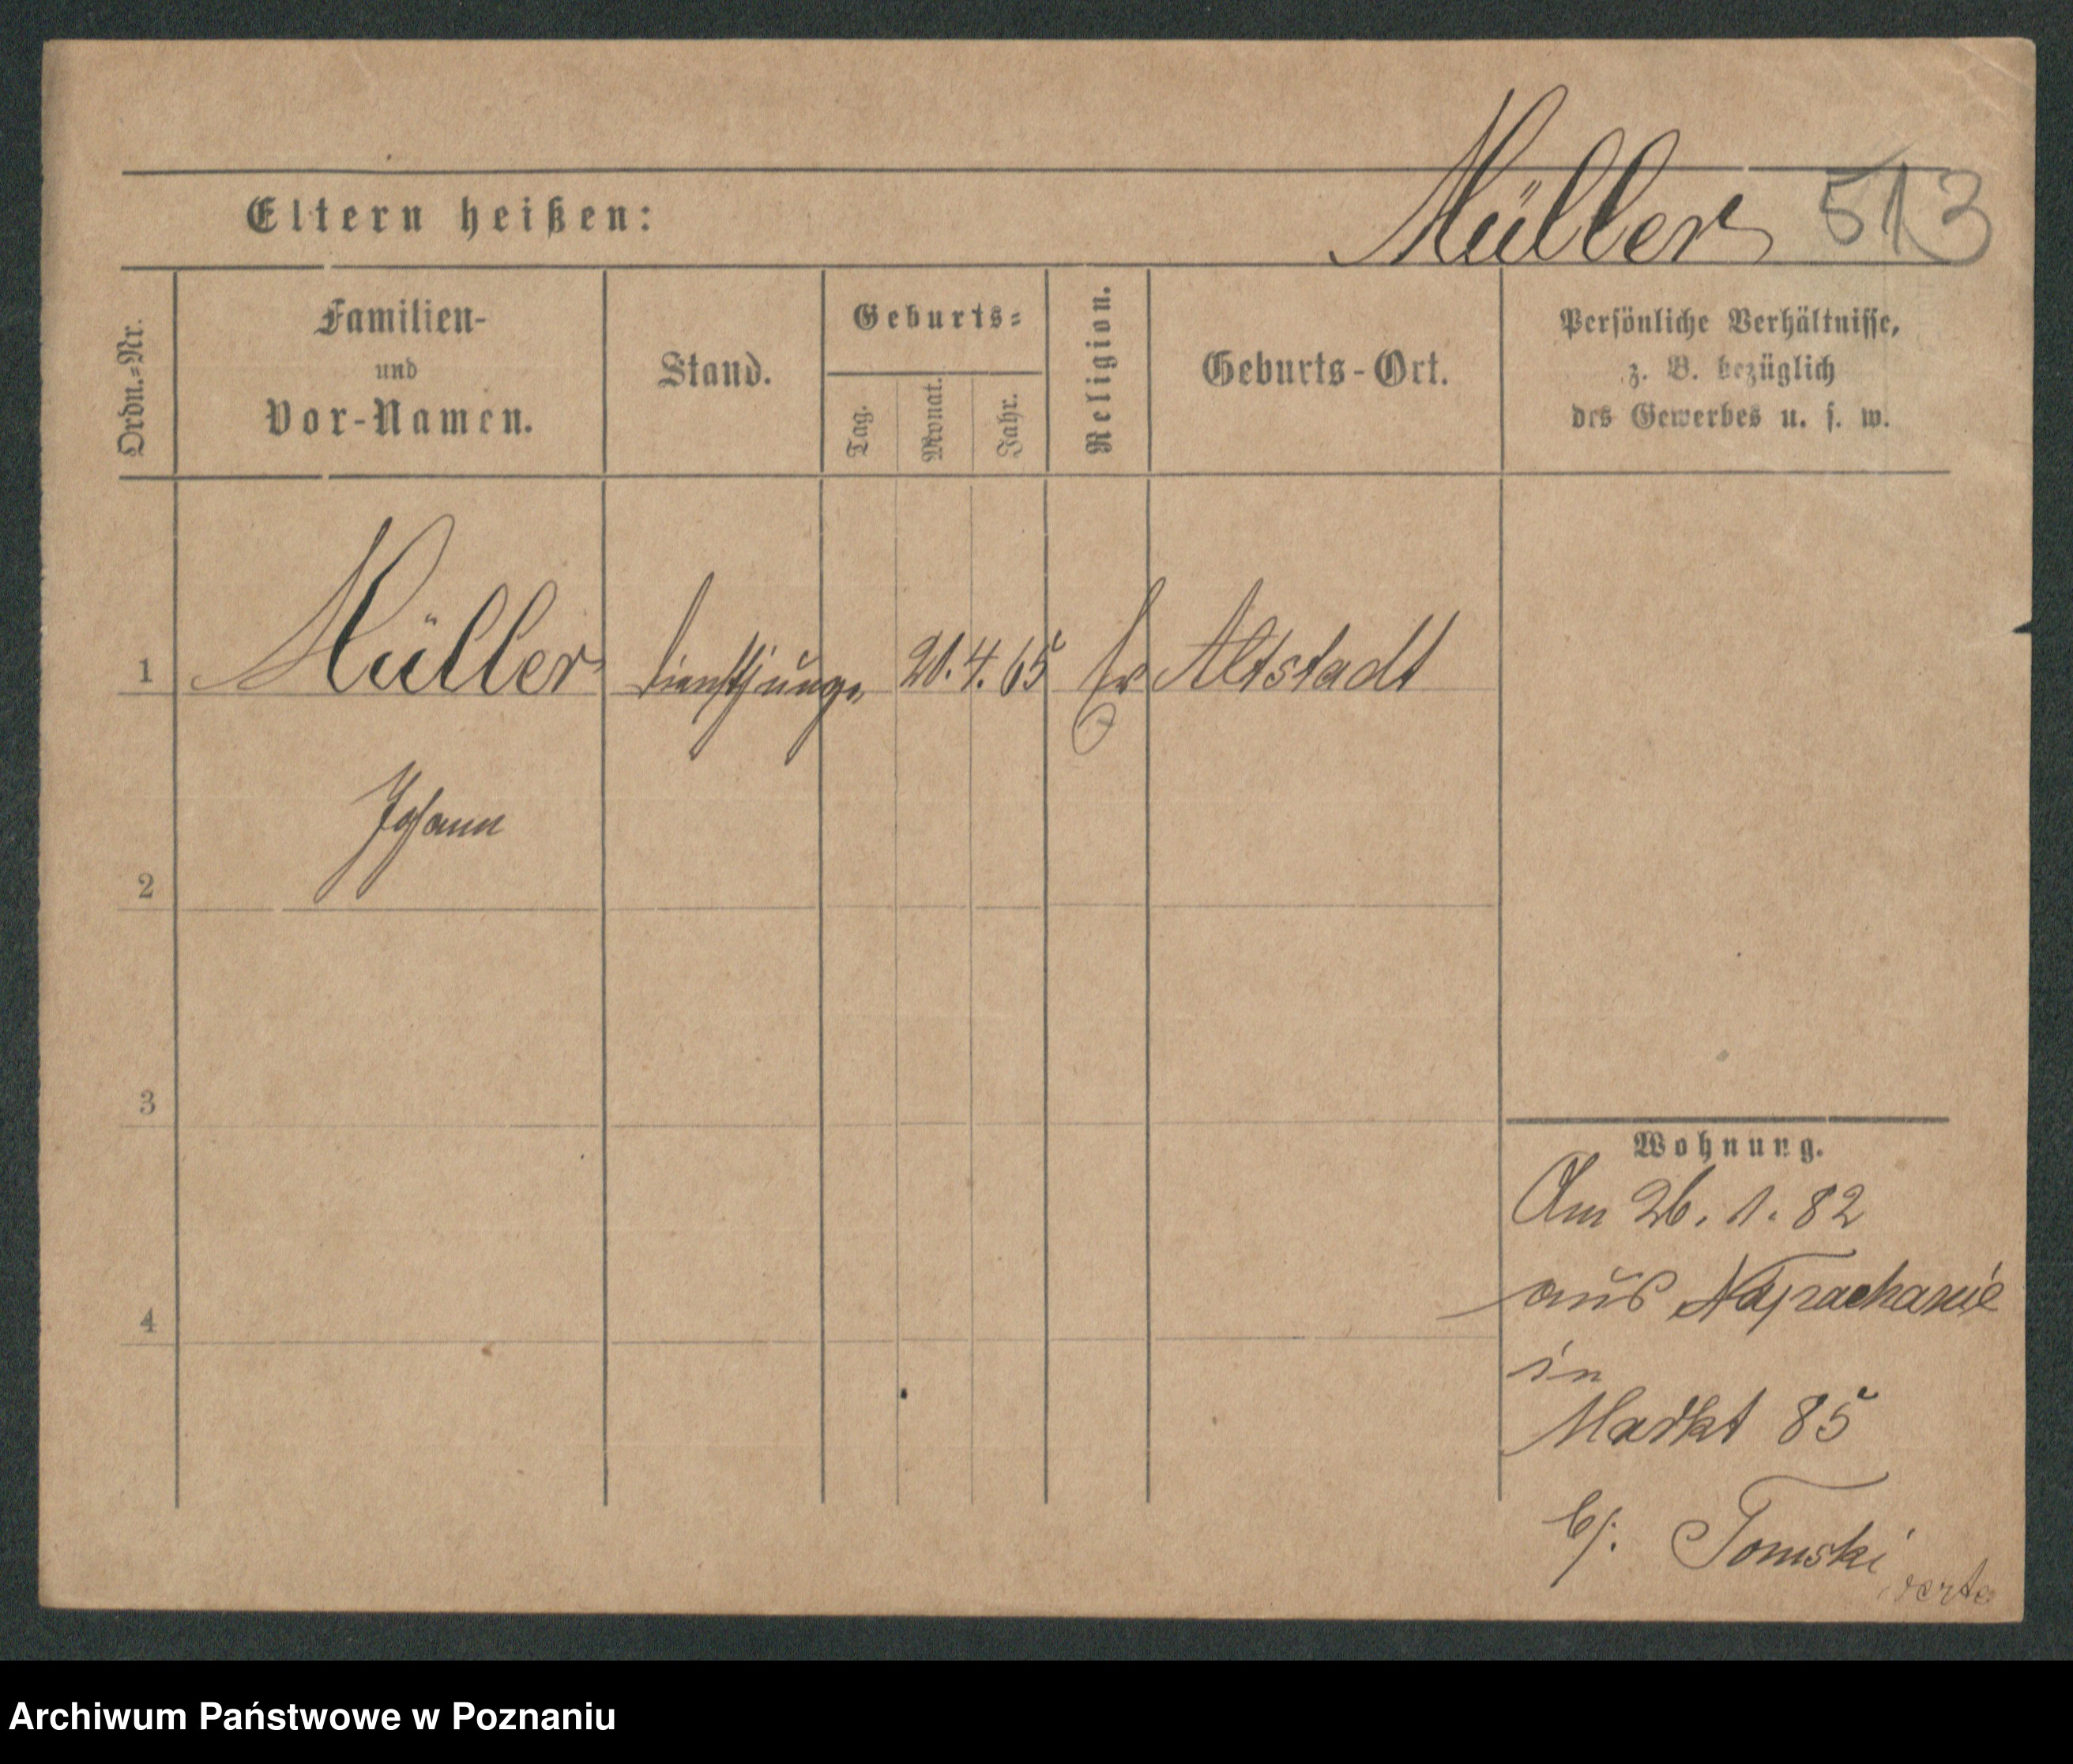 Müller 513
Eltern heißen:
Ordn.=Nr.
Familien-
und
Vor-Namen.
Stand.
Geburts=
Tag.
Monat.
Jahr.
Religion.
Geburts-Ort.
Persönliche Verhältnisse,
z. B. bezüglich
des Gewerbes u. s. w.
1 Müller Dienstjunge 20.4.65 Altstadt
Johann
2
3
4
Wohnung.
Am 26. 1. 82
aus Naprachanie
in
Markt 85
b/. Tomski
verte
Archiwum Państwowe w Poznaniu